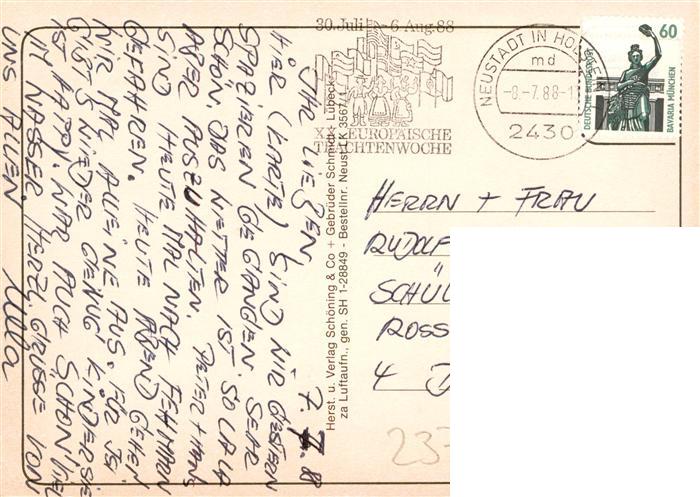 7. 7. 88
IHR LIEBEN,
HIER (KARTE) SIND WIR GESTERN
SPAZIEREN GEGANGEN. SEHR
SCHÖN. DAS WETTER IST SOLALA
ABER AUSZUHALTEN. PETER + HANS
SIND HEUTE MAL NACH FEHMARN
GEFAHREN. HEUTE ABEND GEHEN
WIR MAL ALLEINE AUS. FÜR ISI
GIBT'S WIEDER GENUG KINDER. SIE
IST HAPPY. WAR AUCH SCHON VIEL
IM WASSER. HERZL. GRÜSSE VON
UNS ALLEN
30. Juli - 6. Aug. 88
XI. EUROPÄISCHE
TRACHTENWOCHE
NEUSTADT IN HOLST
md
-8.-7.88-1
2430
60
DEUTSCHE BUNDESPOST
BAVARIA MÜNCHEN
Herst. u. Verlag Schöning & Co + Gebrüder Schmidt · Lübeck
za Luftaufn., gen. SH 1-28849 - Bestellnr. Neust LK 3567/1
HERRN + FRAU
RUDOLF
SCHÜL
ROSS
4 D
237